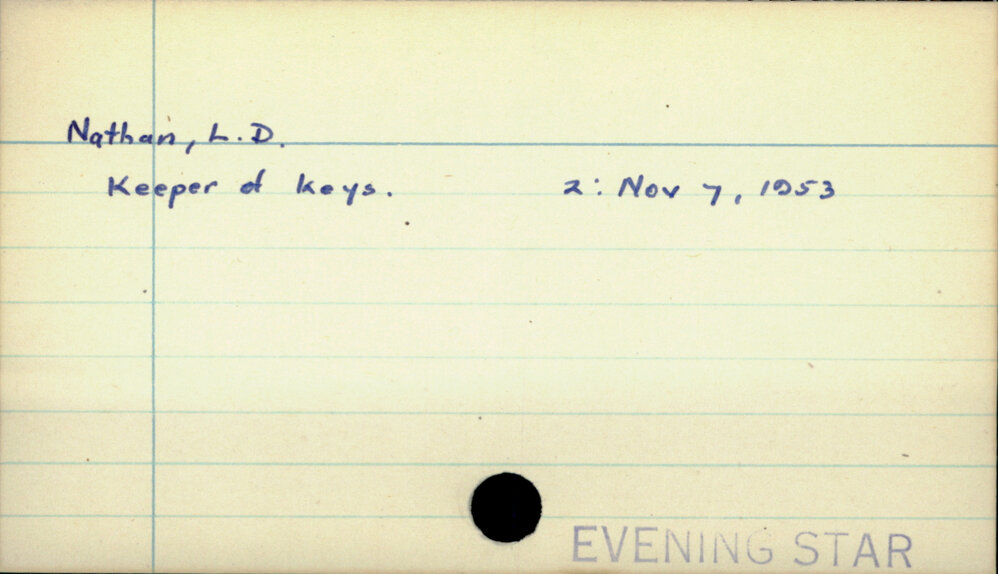 Nathan, L.D.
Keeper of keys. 2: Nov 7, 1953
EVENING STAR